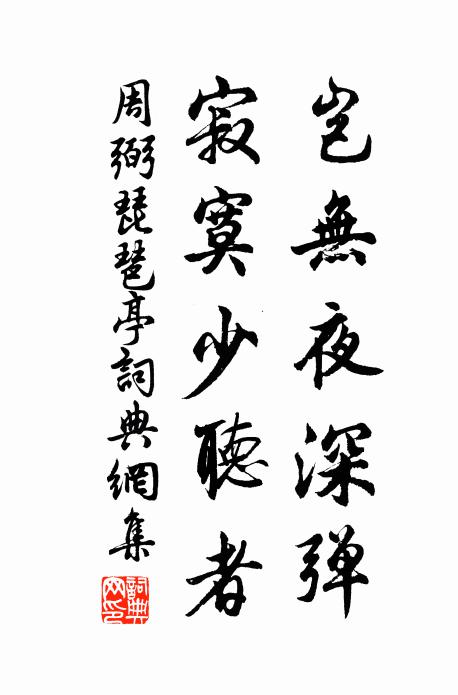 岂無夜深弹
寂寞少聽者
周弼琵琶亭詞典網集
詞典網印